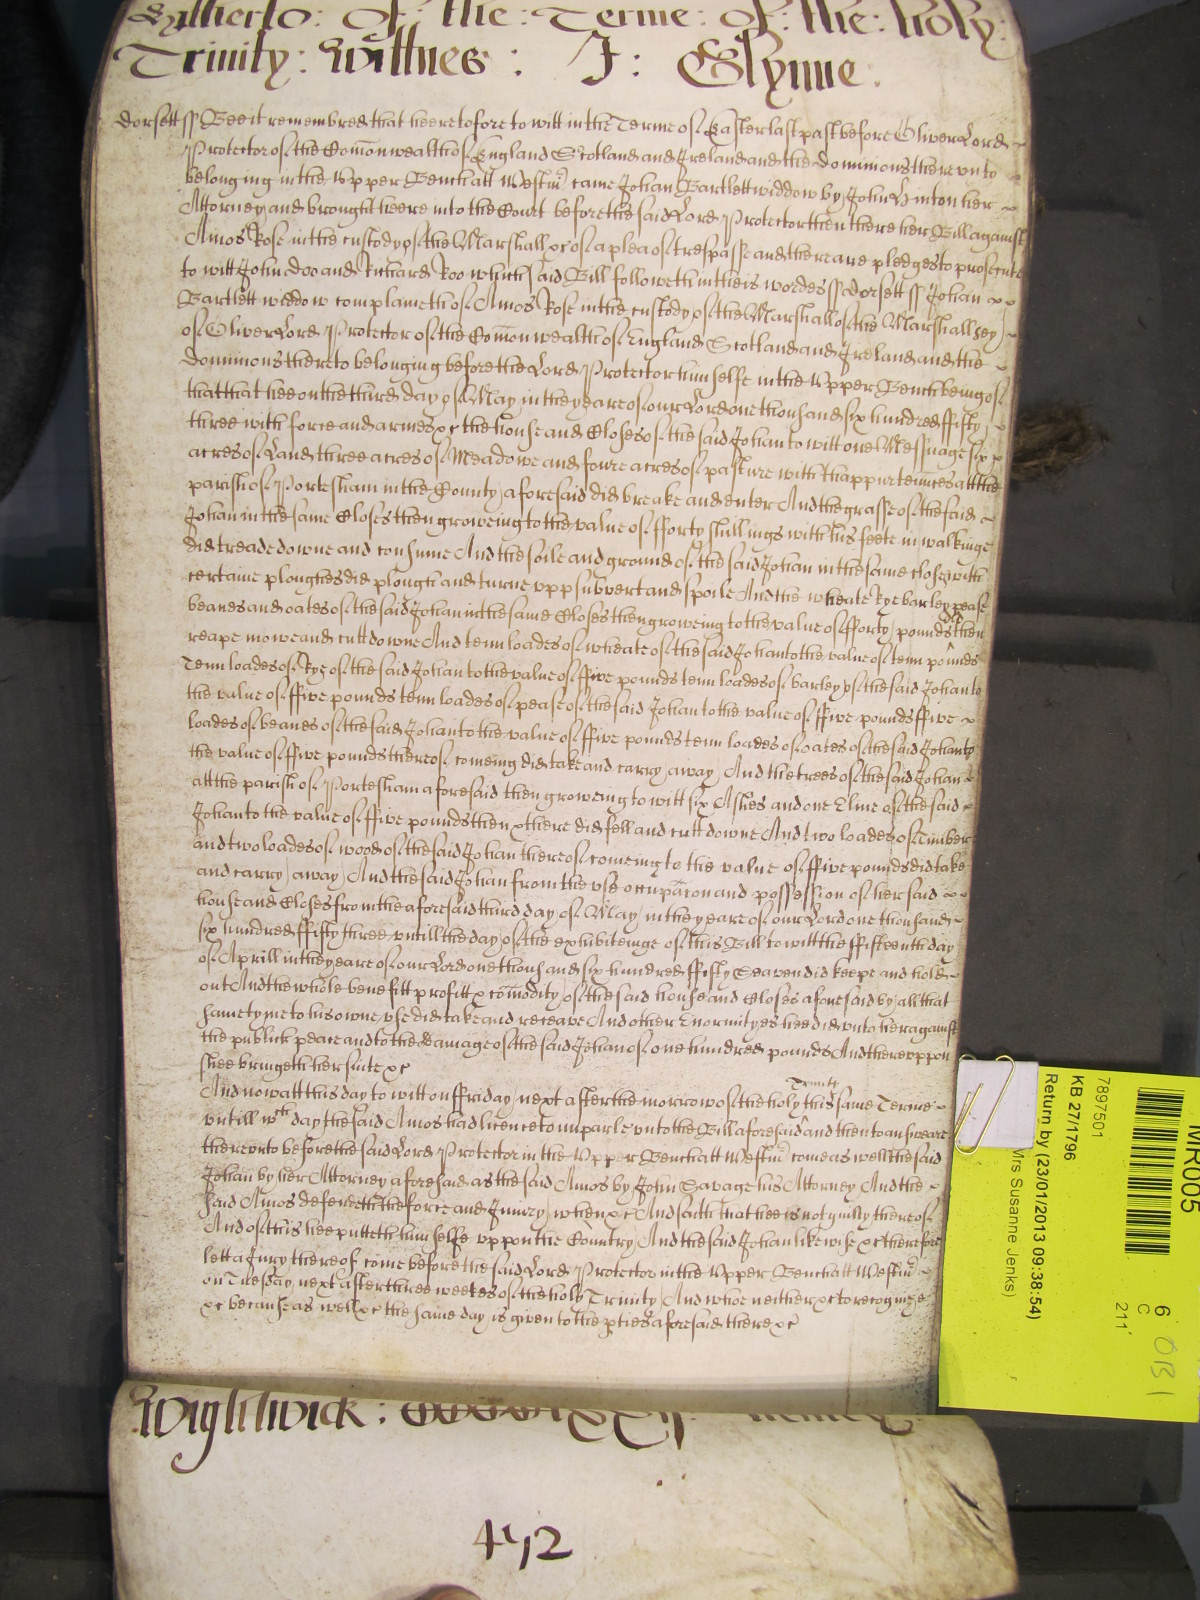 Hitherto : of : the : Terme : of : the : holy :
Trinity : Wittnes : J : Glynne .
Dorsett ss Bee it remembred that heeretofore to witt in the Terme of Easter last past before Oliver Lord
Protector of the Com̄onwealth of England Scotland and Ireland and the dominions therevnto
belonging in the Vpper Bench att Westm̄ came Johan Bartlett widdow by John Hinton her
Attorney and brought heere into the Court before the said Lord Protector then there her Bill against
Amos Rose in the custody of the Marshall &c of a plea of trespasse and there are pledges to prosecute
to witt John Doo and Richard Roo which said Bill followeth in theis wordes ss Dorsett ss Johan
Bartlett widdow complaineth of Amos Rose in the custody of the Marshall of the Marshallsey
of Oliver Lord Protector of the Com̄onwealth of England Scotland and Ireland and the
dominions thereto belonging before the Lord Protector himselfe in the Vpper Bench being of
that that hee on the third day of May in the yeare of our Lord one thousand six hundred fifty
three with force and armes &c the house and Closes of the said Johan to witt one Messuage six
acres of Land three acres of Meadowe and foure acres of pasture with thappurtenn̄ces att the
parish of Portesham in the County aforesaid did breake and enter And the grasse of the said
Johan in the same Closes then groweing to the value of fforty shillings with his feete in walkinge
did treade downe and consume And the soile and ground of the said Johan in the same closes with
certaine ploughes did plough and turne vpp subvert and spoile And the wheate Rye barley pease
beanes and oates of the said Johan in the same Closes then groweing to the value of fforty pounds then did
reape mowe and cutt downe And tenn loades of wheate of the said Johan to the value of tenn pounds
Tenn loades of Rye of the said Johan to the value of ffive pounds tenn loades of barley of the said Johan to
the value of ffive pounds tenn loades of pease of the said Johan to the value of ffive pounds ffive
loades of beanes of the said Johan to the value of ffive pounds tenn loades of oates of the said Johan to
the value of ffive pounds thereof comeing did take and carry away And the trees of the said Johan
att the parish of Portesham aforesaid then groweing to witt six Ashes and one Elme of the said
Johan to the value of ffive pounds then & there did fell and cutt downe And two loades of Timber
and two loades of wood of the said Johan thereof comeing to the value of ffive pounds did take
and carry away And the said Johan from the vse occupac̄on and possession of her said
house and Closes from the aforesaid third day of May in the yeare of our Lord one thousand
six hundred ffifty three vntill the day of the exhibiteinge of this Bill to witt the ffifteenth day
of Aprill in the yeare of our Lord one thousand six hundred ffifty Seaven did keepe and hold
out And the whole benefitt profitt & com̄odity of the said house and Closes aforesaid by all that
same tyme to his owne vse did take and receave And other Enormityes hee did vnto her against
the publick peace and to the damage of the said Johan of one hundred pounds And therevppon
shee bringeth her suite &c
And now att this day to witt on ffriday next after the morrow of the holy Trinity this same Terme
vntill wch day the said Amos had licence to imparle vnto the Bill aforesaid and then to answeare
therevnto before the said Lord Protector in the Vpper Bench att Westm̄ come as well the said
Johan by her Attorney aforesaid as the said Amos by John Savage his Attorney And the
said Amos defendeth the force and Iniury when &c And saith that hee is not guilty thereof
And of this hee putteth himselfe vppon the Country And the said Johan likewise &c therefore
lett a Jury thereof come before the said Lord Protector in the Vpper Bench att Westm̄
on Tuesday next after three weekes of the holy Trinity And who neither &c to recognize
&c because as well &c the same day is given to the p̱ties aforesaid there &c
Wightwick :
472
MR005
7897501
KB 27/1796
Return by (23/01/2013 09:38:54)
Mrs Susanne Jenks)
6 OB 1
C
211